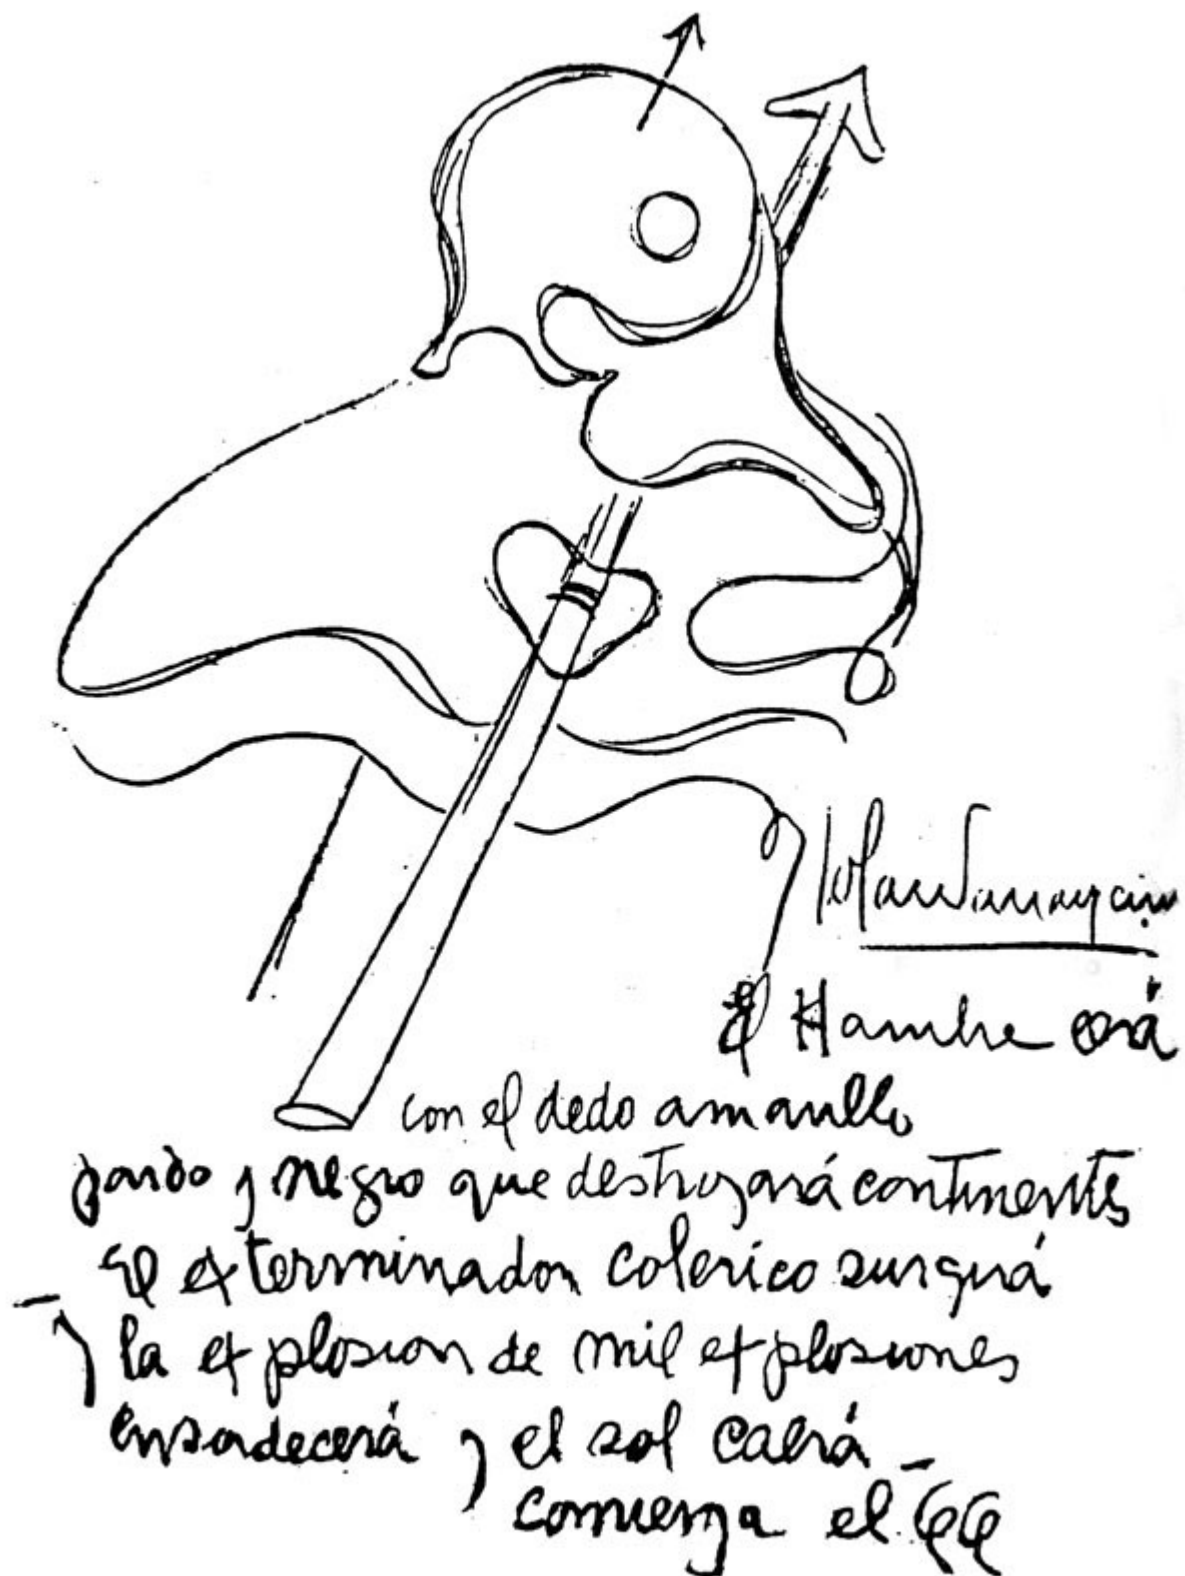 El Hambre será
con el dedo amarillo
pardo y negro que destrozará continentes
El exterminador colerico surgirá
y la explosion de mil explosiones
ensordecerá y el sol caerá
comienza el 66